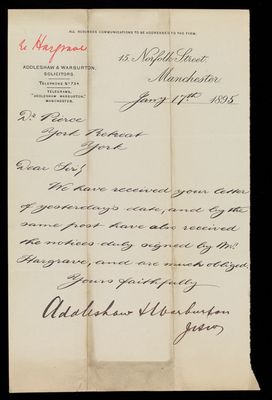 ALL BUSINESS COMMUNICATIONS TO BE ADDRESSED TO THE FIRM.
Hargrave
15, Norfolk Street,
Manchester
ADDLESHAW & WARBURTON,
SOLICITORS.
TELEPHONE No 734
TELEGRAMS,
"ADDLESHAW WARBURTON,"
MANCHESTER.
Jany 17th 1895
Dr. Pierce
York Retreat
York
Dear Sir,
We have received your letter
of yesterday's date, and by the
same post have also received
the notices duly signed by Mr.
Hargrave, and are much obliged.
Yours faithfully
Addleshaw & Warburton